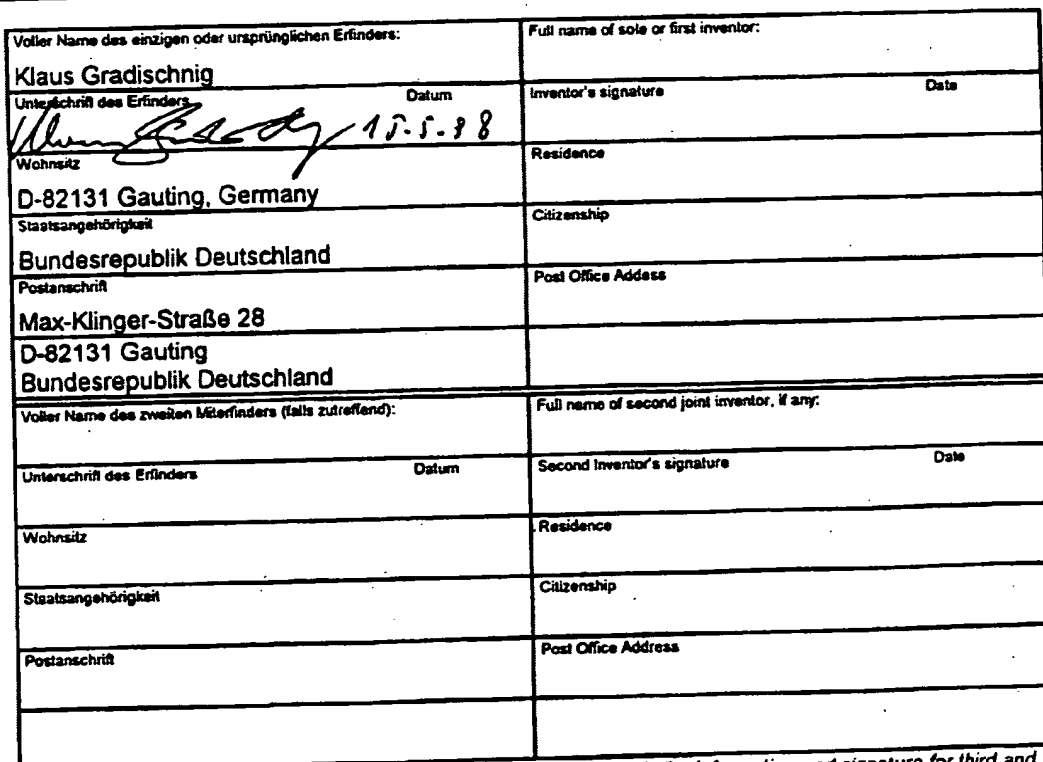 Voller Name des einzigen oder ursprünglichen Erfinders:
Full name of sole or first inventor:
Klaus Gradischnig
Unterschrift des Erfinders Datum
Inventor's signature Date
15.5.98
Wohnsitz
Residence
D-82131 Gauting, Germany
Staatsangehörigkeit
Citizenship
Bundesrepublik Deutschland
Postanschrift
Post Office Addess
Max-Klinger-Straße 28
D-82131 Gauting
Bundesrepublik Deutschland
Voller Name des zweiten Miterfinders (falls zutreffend):
Full name of second joint inventor, if any:
Unterschrift des Erfinders Datum
Second Inventor's signature Date
Wohnsitz
Residence
Staatsangehörigkeit
Citizenship
Postanschrift
Post Office Address
signature for third and